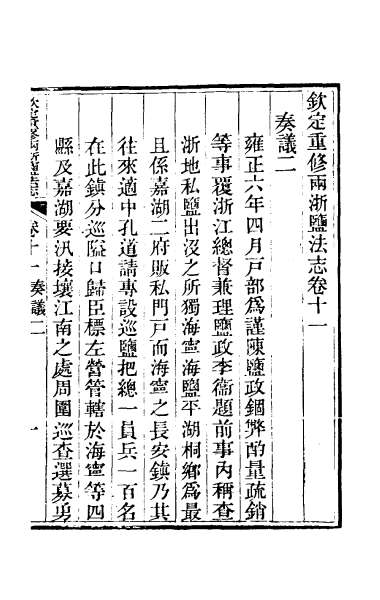 欽定重修兩浙鹽法志卷十一
奏議二
雍正六年四月戶部爲謹陳鹽政錮弊酌量疏銷
等事覆浙江總督兼理鹽政李衞題前事內稱查
浙地私鹽出沒之所獨海寧海鹽平湖桐鄉爲最
且係嘉湖二府販私門戶而海寧之長安鎮乃其
往來適中孔道請專設巡鹽把總一員兵一百名
在此鎮分巡隘口歸臣標左營管轄於海寧等四
縣及嘉湖要汛接壤江南之處周圍巡查選募勇
欽定重修兩浙鹽法志
卷十一奏議二
一